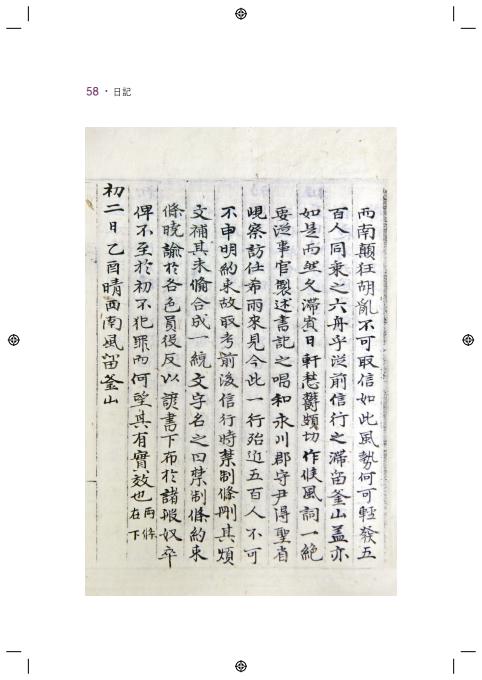 58 · 日記
西南顛狂胡亂不可取信如此風勢何可輕發五
百人同乘之六舟乎從前信行之滯留釜山盖亦
如是而然久滯賓日軒愁欝頗切作候風詞一絶
要從事官製述書記之唱和永川郡守尹得聖省
峴察訪任希雨來見今此一行殆近五百人不可
不申明約束故取考前後信行時禁制條刪其煩
文補其未備合成一統文字名之曰禁制條約束
條曉諭於各色員役反以諺書下布於諸般奴卒
俾不至於初不犯罪而何望其有實效也 兩條在下
初二日乙酉晴西南風留釜山